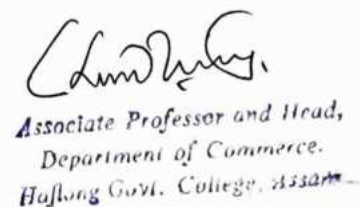 Associate Professor and Head,
Department of Commerce.
Haflong Govt. College, Assam